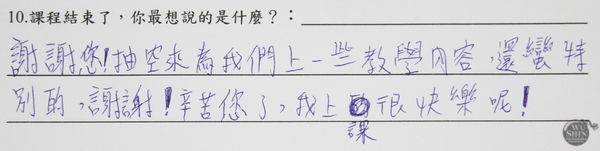 10.課程結束了，你最想說的是什麼？：
謝謝您！抽空來為我們上一些教學內容，還蠻特
別的，謝謝！辛苦您了，我上課很快樂呢！
WU SHIN